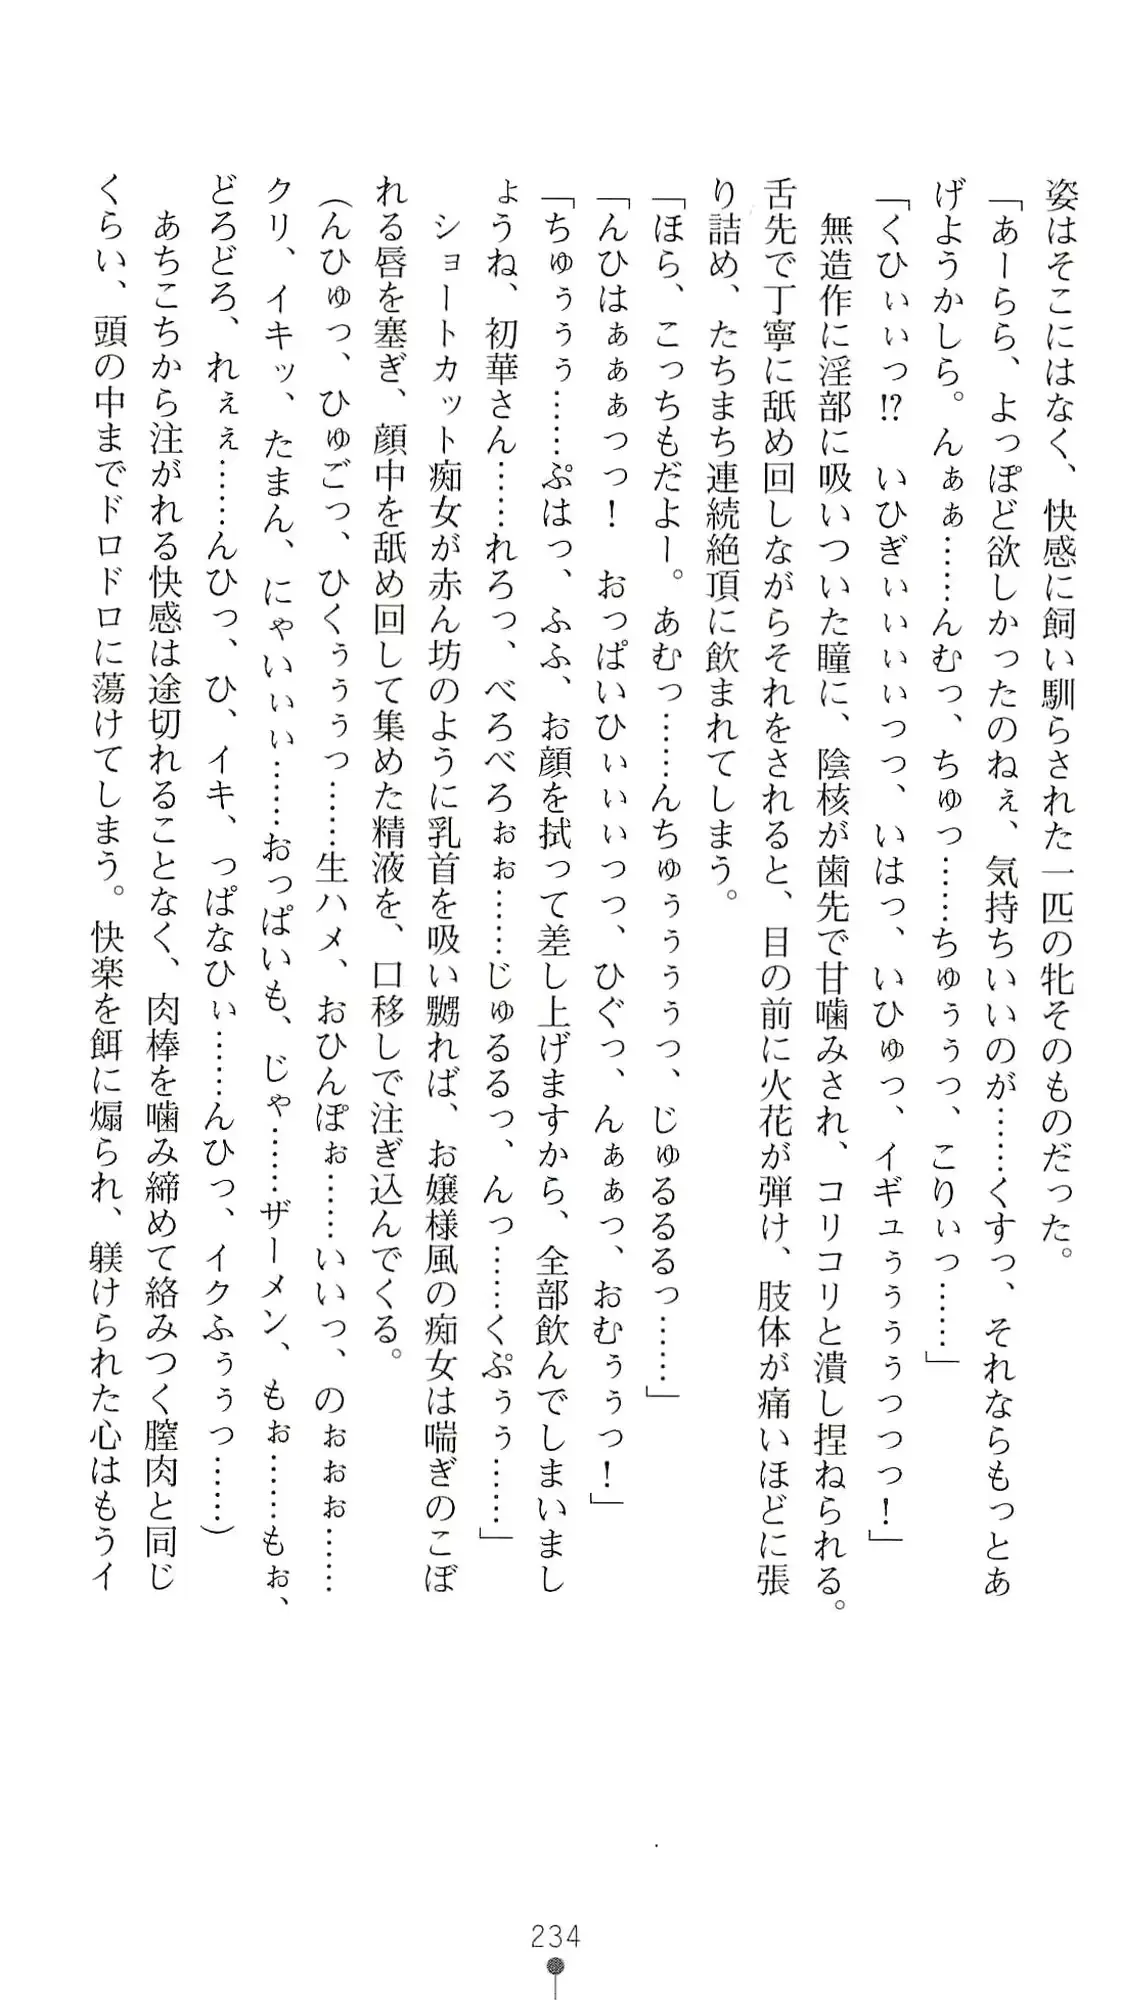 姿はそこにはなく、快感に飼い馴らされた一匹の牝そのものだった。
「あーらら、よっぽど欲しかったのねぇ、気持ちいいのが……くすっ、それならもっとあ
げようかしら。んぁぁ……んむっ、ちゅっ……ちゅぅぅっ、こりぃっ……」
「くひぃいっ!?　いひぎぃぃぃぃっっ、いはっ、いひゅっ、イギュぅぅぅぅっつっ！」
無造作に淫部に吸いついた瞳に、陰核が歯先で甘噛みされ、コリコリと潰し捏ねられる。
舌先で丁寧に舐め回しながらそれをされると、目の前に火花が弾け、肢体が痛いほどに張
り詰め、たちまち連続絶頂に飲まれてしまう。
「ほら、こっちもだよー。あむっ……んちゅぅぅぅぅっ、じゅるるるっ……」
「んひはぁぁぁっっ！　おっぱいひぃぃぃっっ、ひぐっ、んぁぁっ、おむぅぅっ！」
「ちゅぅぅぅ……ぷはっ、ふふ、お顔を拭って差し上げますから、全部飲んでしまいまし
ょうね、初華さん……れろっ、べろべろぉぉ……じゅるるっ、んっ……くぷぅぅ……」
ショートカット痴女が赤ん坊のように乳首を吸い嬲れば、お嬢様風の痴女は喘ぎのこぼ
れる唇を塞ぎ、顔中を舐め回して集めた精液を、口移しで注ぎ込んでくる。
（んひゅっ、ひゅごっ、ひくぅぅぅっ……生ハメ、おひんぽぉ……いいっ、のぉぉぉ……
クリ、イキッ、たまん、にゃいぃぃ……おっぱいも、じゃ……ザーメン、もぉ……もぉ、
どろどろ、れぇぇ……んひっ、ひ、イキ、っぱなひぃ……んひっ、イクふぅぅっ……）
あちこちから注がれる快感は途切れることなく、肉棒を噛み締めて絡みつく膣肉と同じ
くらい、頭の中までドロドロに蕩けてしまう。快楽を餌に煽られ、躾けられた心はもうイ
234